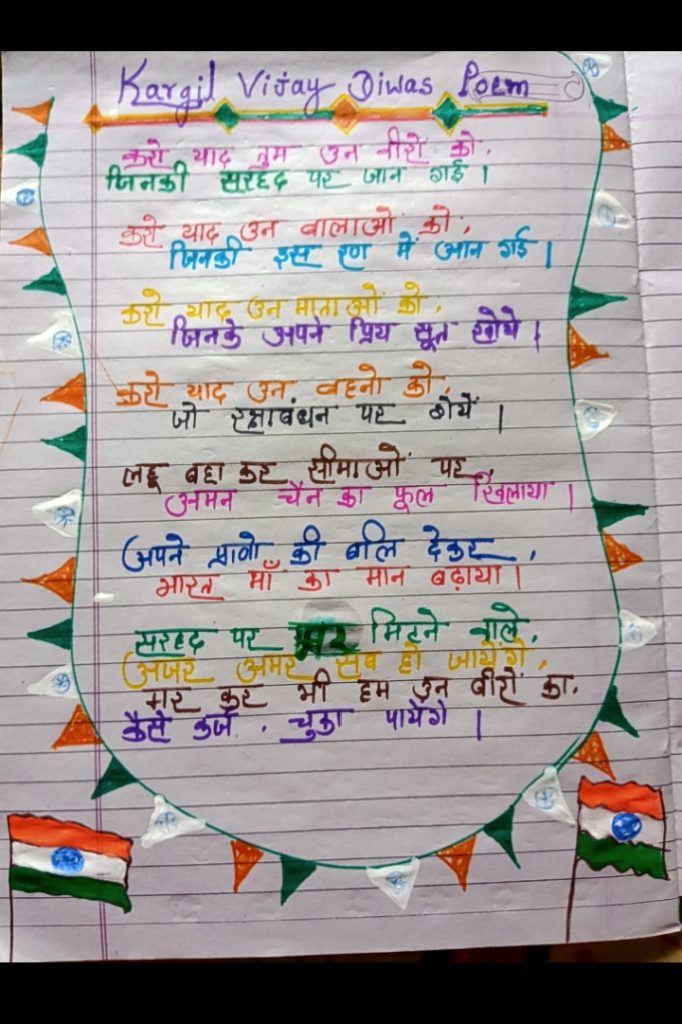 Kargil Vijay Diwas Poem
करो याद तुम उन वीरो को,
जिनकी सरहद पर जान गई।
करो याद उन बालाओं को,
जिनकी इस रण में आन गई।
करो याद उन माताओं को,
जिनके अपने प्रिय सूत खोये।
करो याद उन बहनो को,
जो रक्षाबंधन पर रोयें।
लहू बहा कर सीमाओं पर,
अमन चैन का फूल खिलाया।
अपने प्राणो की बलि देकर,
भारत माँ का मान बढ़ाया।
सरहद पर मर मिटने वाले,
अजर अमर सब हो जायेंगे,
मर कर भी हम उन वीरों का,
कैसे कर्ज, चुका पायेगे।